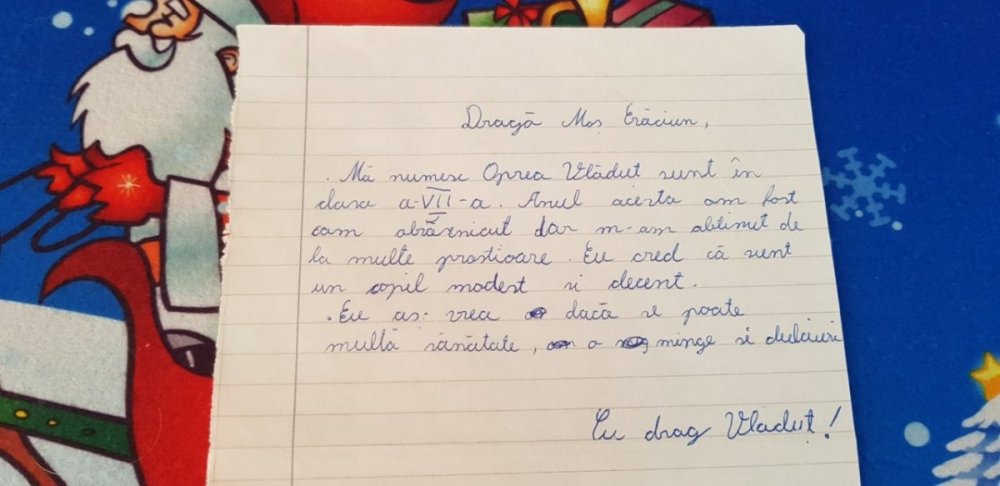 Dragă Moș Crăciun,
. Mă numesc Oprea Vlăduț sunt în
clasa a-VII-a. Anul acesta am fost
cam obrăznicuț dar m-am abținut de
la multe prostioare. Eu cred că sunt
un copil modest si decent.
. Eu as vrea dacă se poate
multă sănătate, o minge si dulciuri
Cu drag Vlăduț!